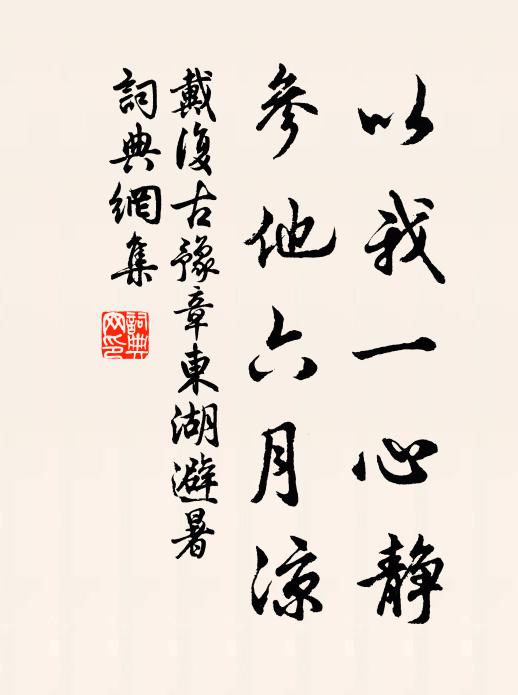 以我一心静
參他六月涼
戴復古豫章東湖避暑
詞典網集
詞典網印